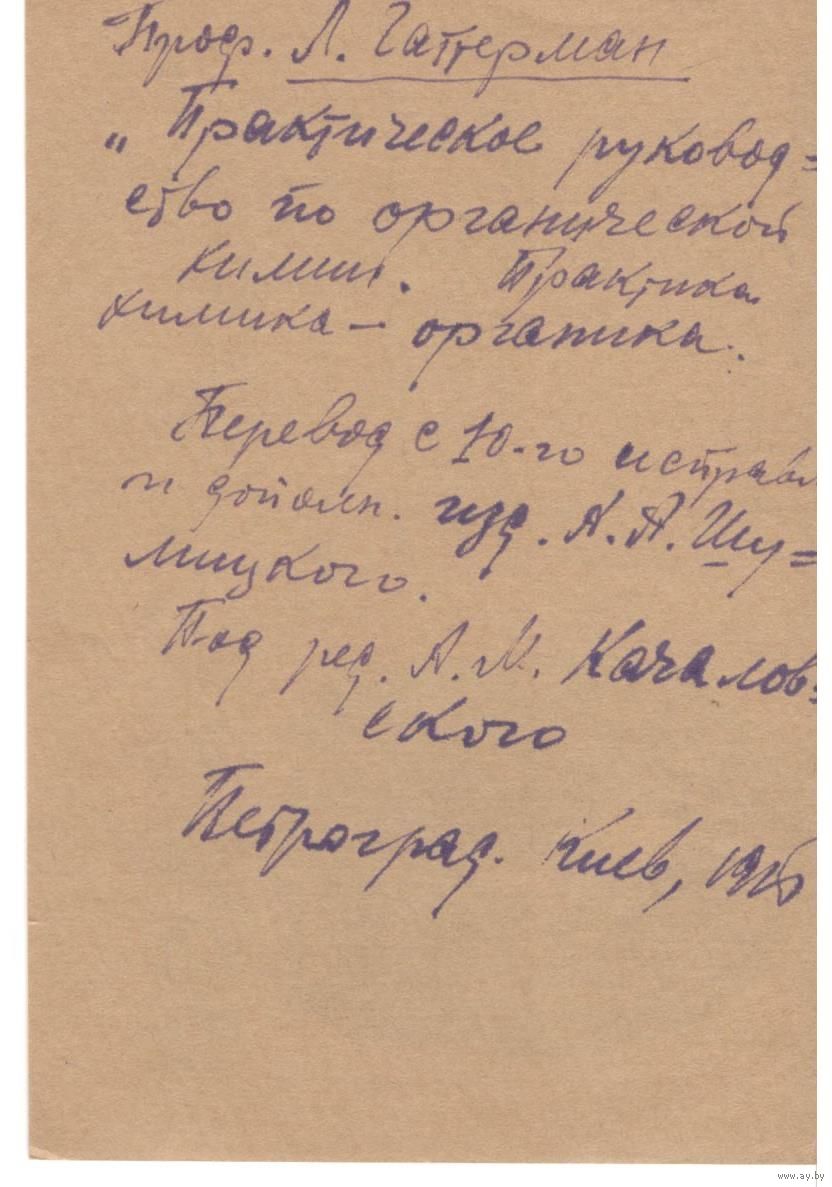 Проф. Л. Гаттерман
„ Практическое руковод=
ство по органической
химии. Практика
химика — органика.
Перевод с 10-го исправл
и дополн. изд. А. А. Шу=
мицкого.
Под ред. А. М. Качалов=
ского
Петроград. Киев,
www.ay.by